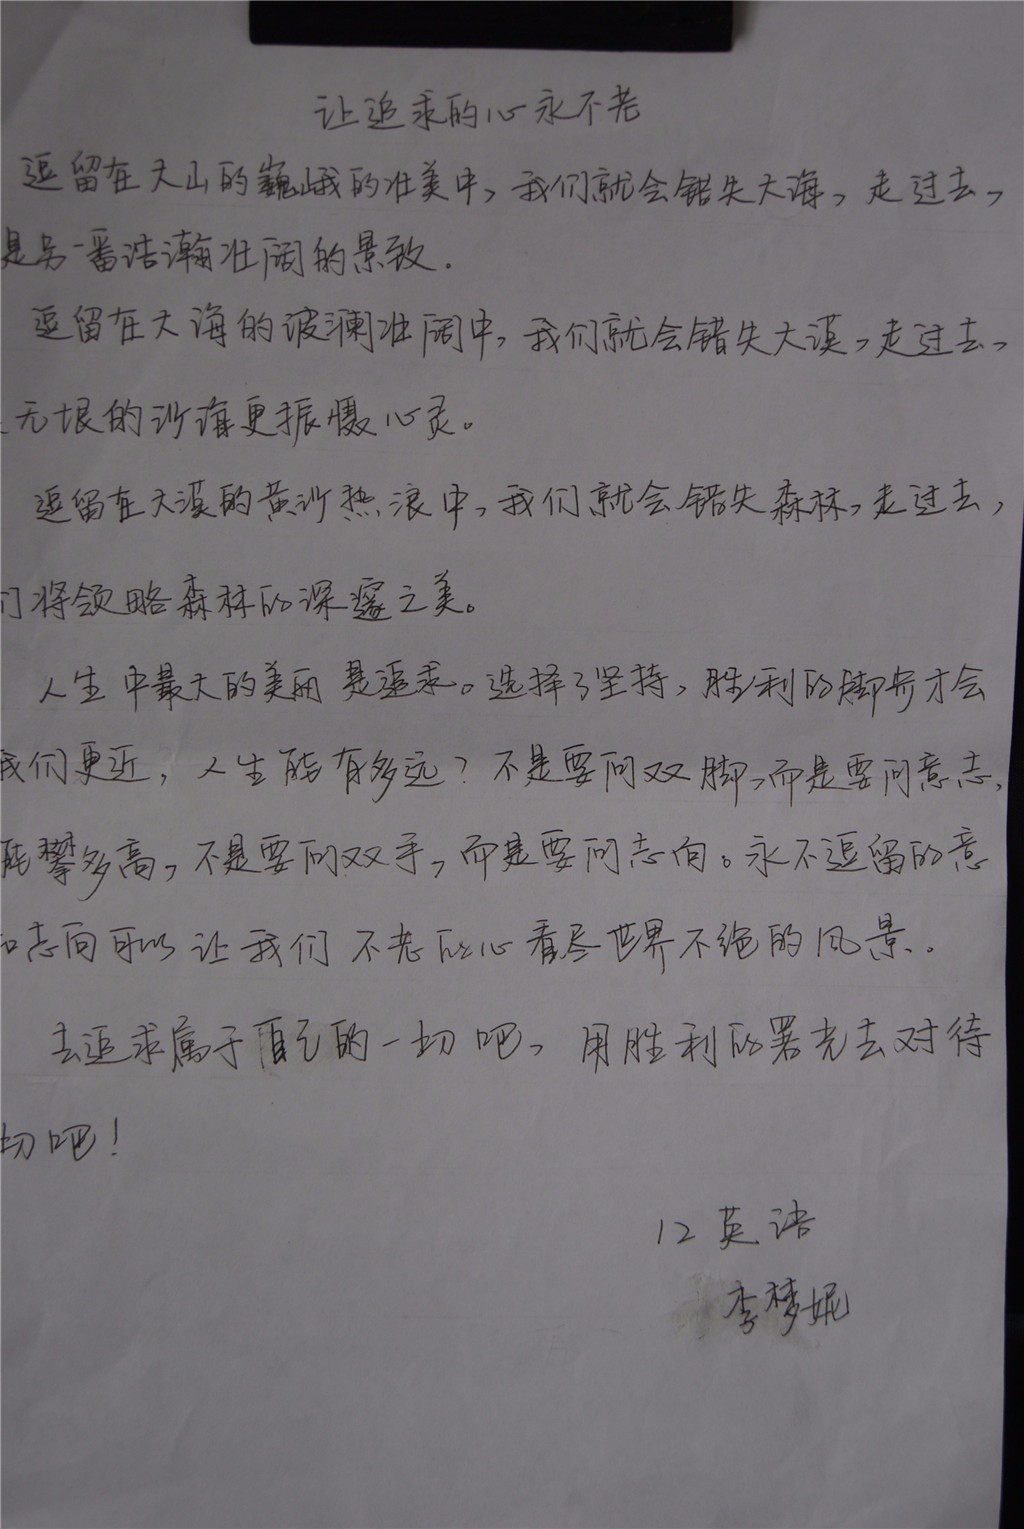 让追求的心永不老
逗留在大山的巍峨的壮美中,我们就会错失大海,走过去,
是另一番浩瀚壮阔的景致.
逗留在大海的波澜壮阔中,我们就会错失大漠,走过去,
无垠的沙海更振慑心灵。
逗留在大漠的黄沙热浪中,我们就会错失森林,走过去,
们将领略森林的深邃之美。
人生中最大的美丽是追求。选择了坚持,胜利的脚步才会
我们更近,人生能有多远?不是要问双脚,而是要问意志,
能攀多高,不是要问双手,而是要问志向。永不逗留的意
和志向可以让我们不老的心看尽世界不绝的风景.
去追求属于自己的一切吧,用胜利的署光去对待
切吧!
12英语
李梦妮